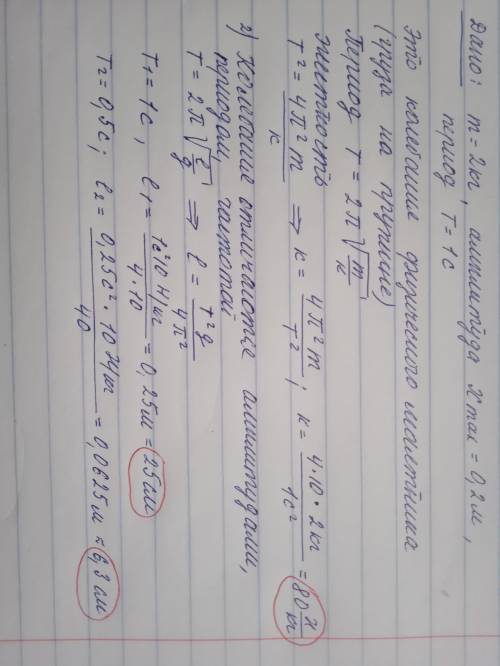 Дано: m = 2кг, амплитуда Xmax = 0,2м,
период T = 1с
Это колебание физического маятника
(груза на пружине)
Период T = 2π√(m/к)
жесткость
T² = 4π²m/к ⇒ к = 4π²m/T²; к = 4·10·2кг/1с² = 80 Н/м
2) Колебание отличаются амплитудами,
периодом, частотой
T = 2π√(ℓ/g) ⇒ ℓ = T²g/4π²
T₁ = 1с, ℓ₁ = 1с²10 Н/кг/4·10 = 0,25м = 25см
T₂ = 0,5с; ℓ₂ = 0,25с²·10 Н/кг/40 = 0,0625м ≈ 6,3см